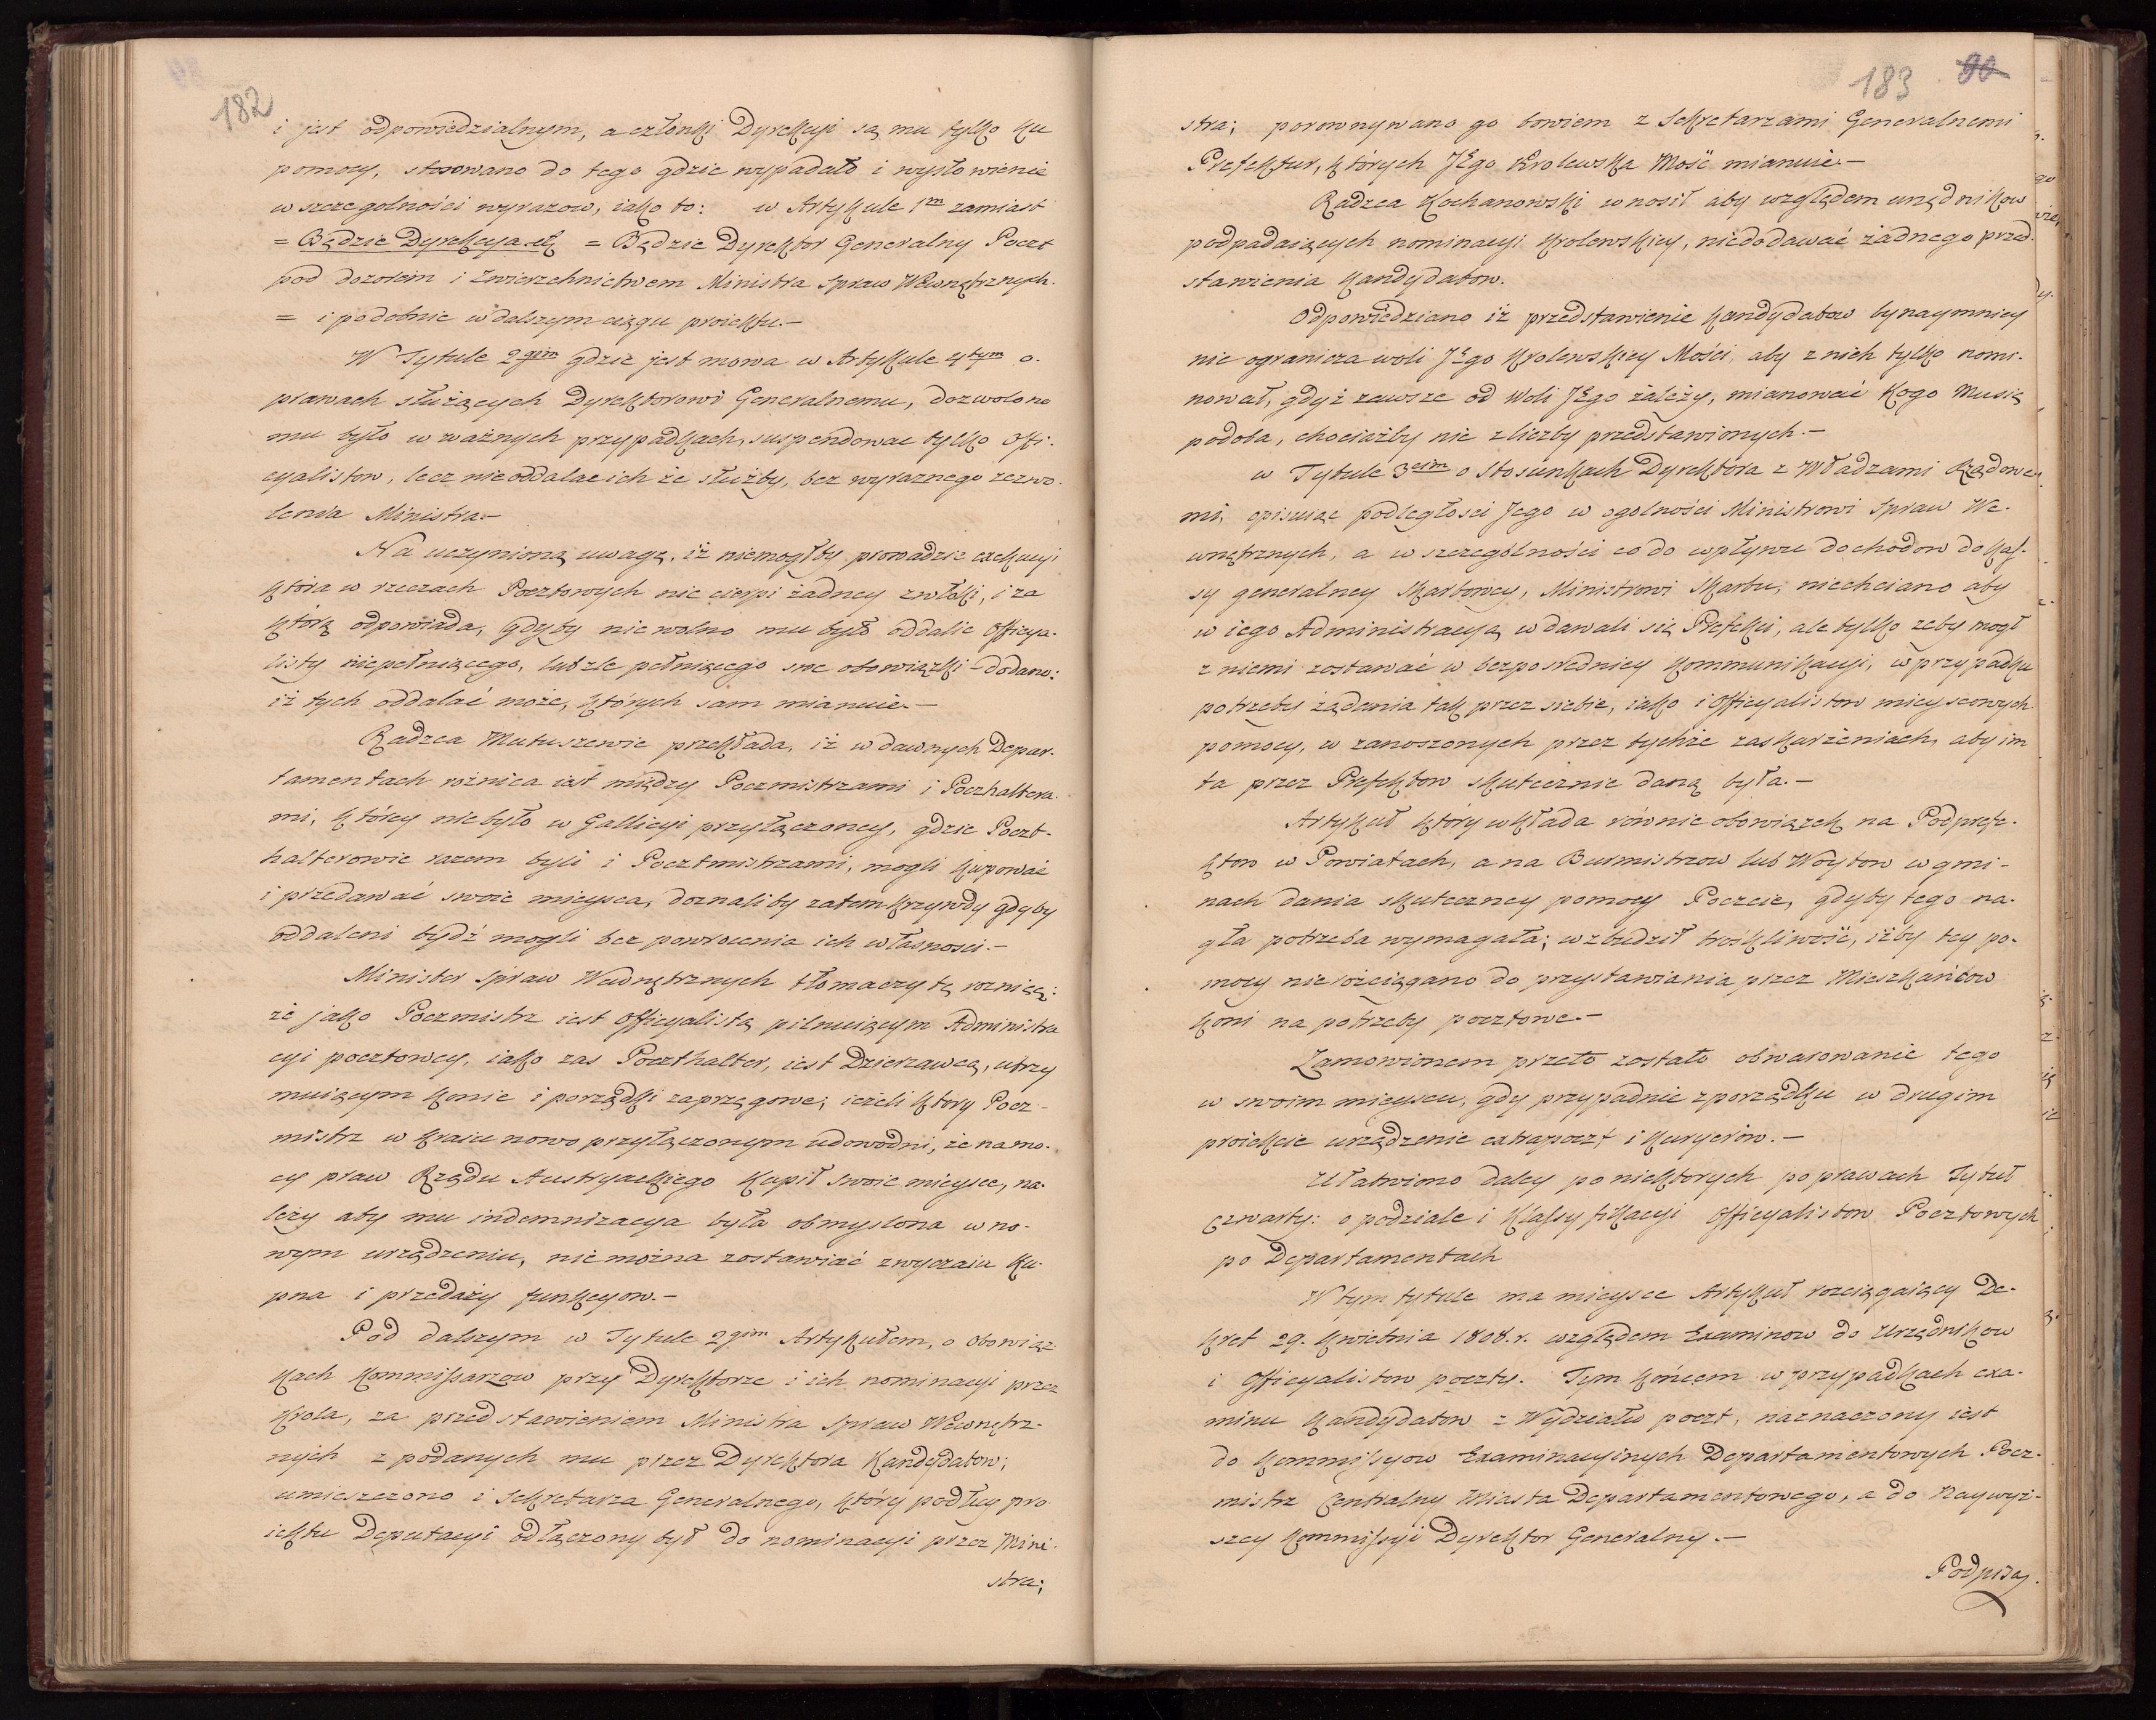 182
i jest odpowiedzialnym, a członki Dyrekcyi są mu tylko ku
pomocy, stosowano do tego gdzie wypadało i wysłowienie
w szczegolności wyrazow, iako to: w Artykule 1m zamiast
= Będzie Dyrekcya etc = Będzie Dyrektor Generalny Poczt
pod dozorem i Zwierzchnictwem Ministra Spraw Wewnętrznych.
= i podobnie w dalszym ciągu proiektu.—
W Tytule 2gim gdzie jest mowa w Artykule 4tym o.
prawach służących Dyrektorowi Generalnemu, dozwolono
mu było w ważnych przypadkach, suspendowac tylko offi-
cyalistow, lecz nie oddalac ich ze służby, bez wyraznego zezwo-
lenia Ministra.—
Na uczynioną uwagę, iż niemogłby prowadzic exekucyi
która w rzeczach Pocztowych nie cierpi żadney zwłoki, i za
którą odpowiada, gdyby nie wolno mu było oddalic Officya-
listy niepełniącego, lub zle pełniącego swe obowiązki – dodano:
iż tych oddalać może, których sam mianuie.—
Radzca Matuszewic przekłada, iż w dawnych Depar-
tamentach rożnica iest między Poczmistrzami i Poczhaltera-
mi, którey nie było w Gallicyi przyłączoney, gdzie Poczt-
halterowie razem byli i Pocztmistrzami, mogli kupować
i przedawać swoie mieysca, doznaliby zatem krzywdy gdyby
oddaleni bydź mogli bez powrocenia ich własnosci.—
Minister Spraw Wewnętrznych tłomaczy tę roznicę:
że jako Poczmistrz iest Officyalistą pilnuiącym Administra
cyi pocztowey, iako zas Poczthalter, iest Dzierzawcą, utrzy
muiącym konie i porządki zaprzągowe; ieżeli ktory Pocz-
mistrz w kraiu nowo przyłączonym udowodni, że na mo-
cy praw Rządu Austryackiego kupił swoie mieysce, na-
leży aby mu indemnizacya była obmyslona w no-
wym urządzeniu, nie można zostawiać zwyczaiu ku-
pna i przedaży funkcyow.—
Pod dalszym w Tytule 2gim Artykułem, o obowiąz-
kach Kommissarzow przy Dyrektorze i ich nominacyi przez
Krola, za przedstawieniem Ministra Spraw Wewnętrz-
nych z podanych mu przez Dyrektora Kandydatow;
umieszczono i Sekretarza Generalnego, który podług pro
iektu Deputacyi odłączony był do nominacyi przez Mini-
stra;
183 90
stra; porownywano go bowiem z Sekretarzami Generalnemi
Prefektur, których JEgo Krolewska Mość mianuie.—
Radzca Kochanowski wnosił aby względem urzędnikow
podpadaiących nominacyi Krolewskiey, niedodawać żadnego przed-
stawienia Kandydatow.
Odpowiedziano iż przedstawienie kandydatow bynaymniey
nie ogranicza woli JEgo Krolewskiey Mości, aby z nich tylko nomi-
nował, gdyż zawsze od Woli JEgo zależy, mianować kogo Mu się
podoba, chociażby nie z liczby przedstawionych.—
w Tytule 3cim o Stosunkach Dyrektora z Władzami Rządowe-
mi, opisuiąc podległosci Jego w ogolności Ministrowi Spraw We-
wnętrznych, a w szczególności co do wpływu dochodow do kas-
sy generalney Skarbowey, Ministrowi Skarbu, niechciano aby
w iego Administracyą wdawali się Prefekci, ale tylko zeby mogł
z niemi zostawać w bezposredniey kommunikacyi, w przypadku
potrzeby żądania tak przez siebie, iako i Officyalistow mieyscowych
pomocy, w zanoszonych przez tychże zaskarżeniach, aby im
ta przez Prefektow skutecznie daną była.—
Artykuł który wkłada równie obowiązek na Podprefe-
ktow w Powiatach, a na Burmistrzow lub Woytow w gmi-
nach dania skuteczney pomocy Poczcie, gdyby tego na-
gła potrzeba wymagała; wzbudził troskliwość, iżby tey po-
mocy nie rozciągano do przystawiania przez Mieszkańcow
koni na potrzeby pocztowe.—
Zamowionem przeto zostało obwarowanie tego
w swoim mieyscu, gdy przypadnie z porządku w drugim
proiekcie urządzenie extrapoczt i kuryerow.—
Ułatwiono daley po niektorych poprawach Tytuł
czwarty: o podziale i klassyfikacyi Officyalistow Pocztowych
po Departamentach
W tym tytule ma mieysce Artykuł rozciągaiący De-
kret 29. kwietnia 1808. r. względem Examinow do Urzędnikow
i Officyalistow poczty. Tym końcem w przypadkach exa-
minu kandydatow z Wydziału poczt, naznaczony iest
do Kommissyow Examinacyinych Departamentowych Pocz-
mistrz Centralny Miasta Departamentowego, a do Naywyż-
szey Kommissyi Dyrektor Generalny.—